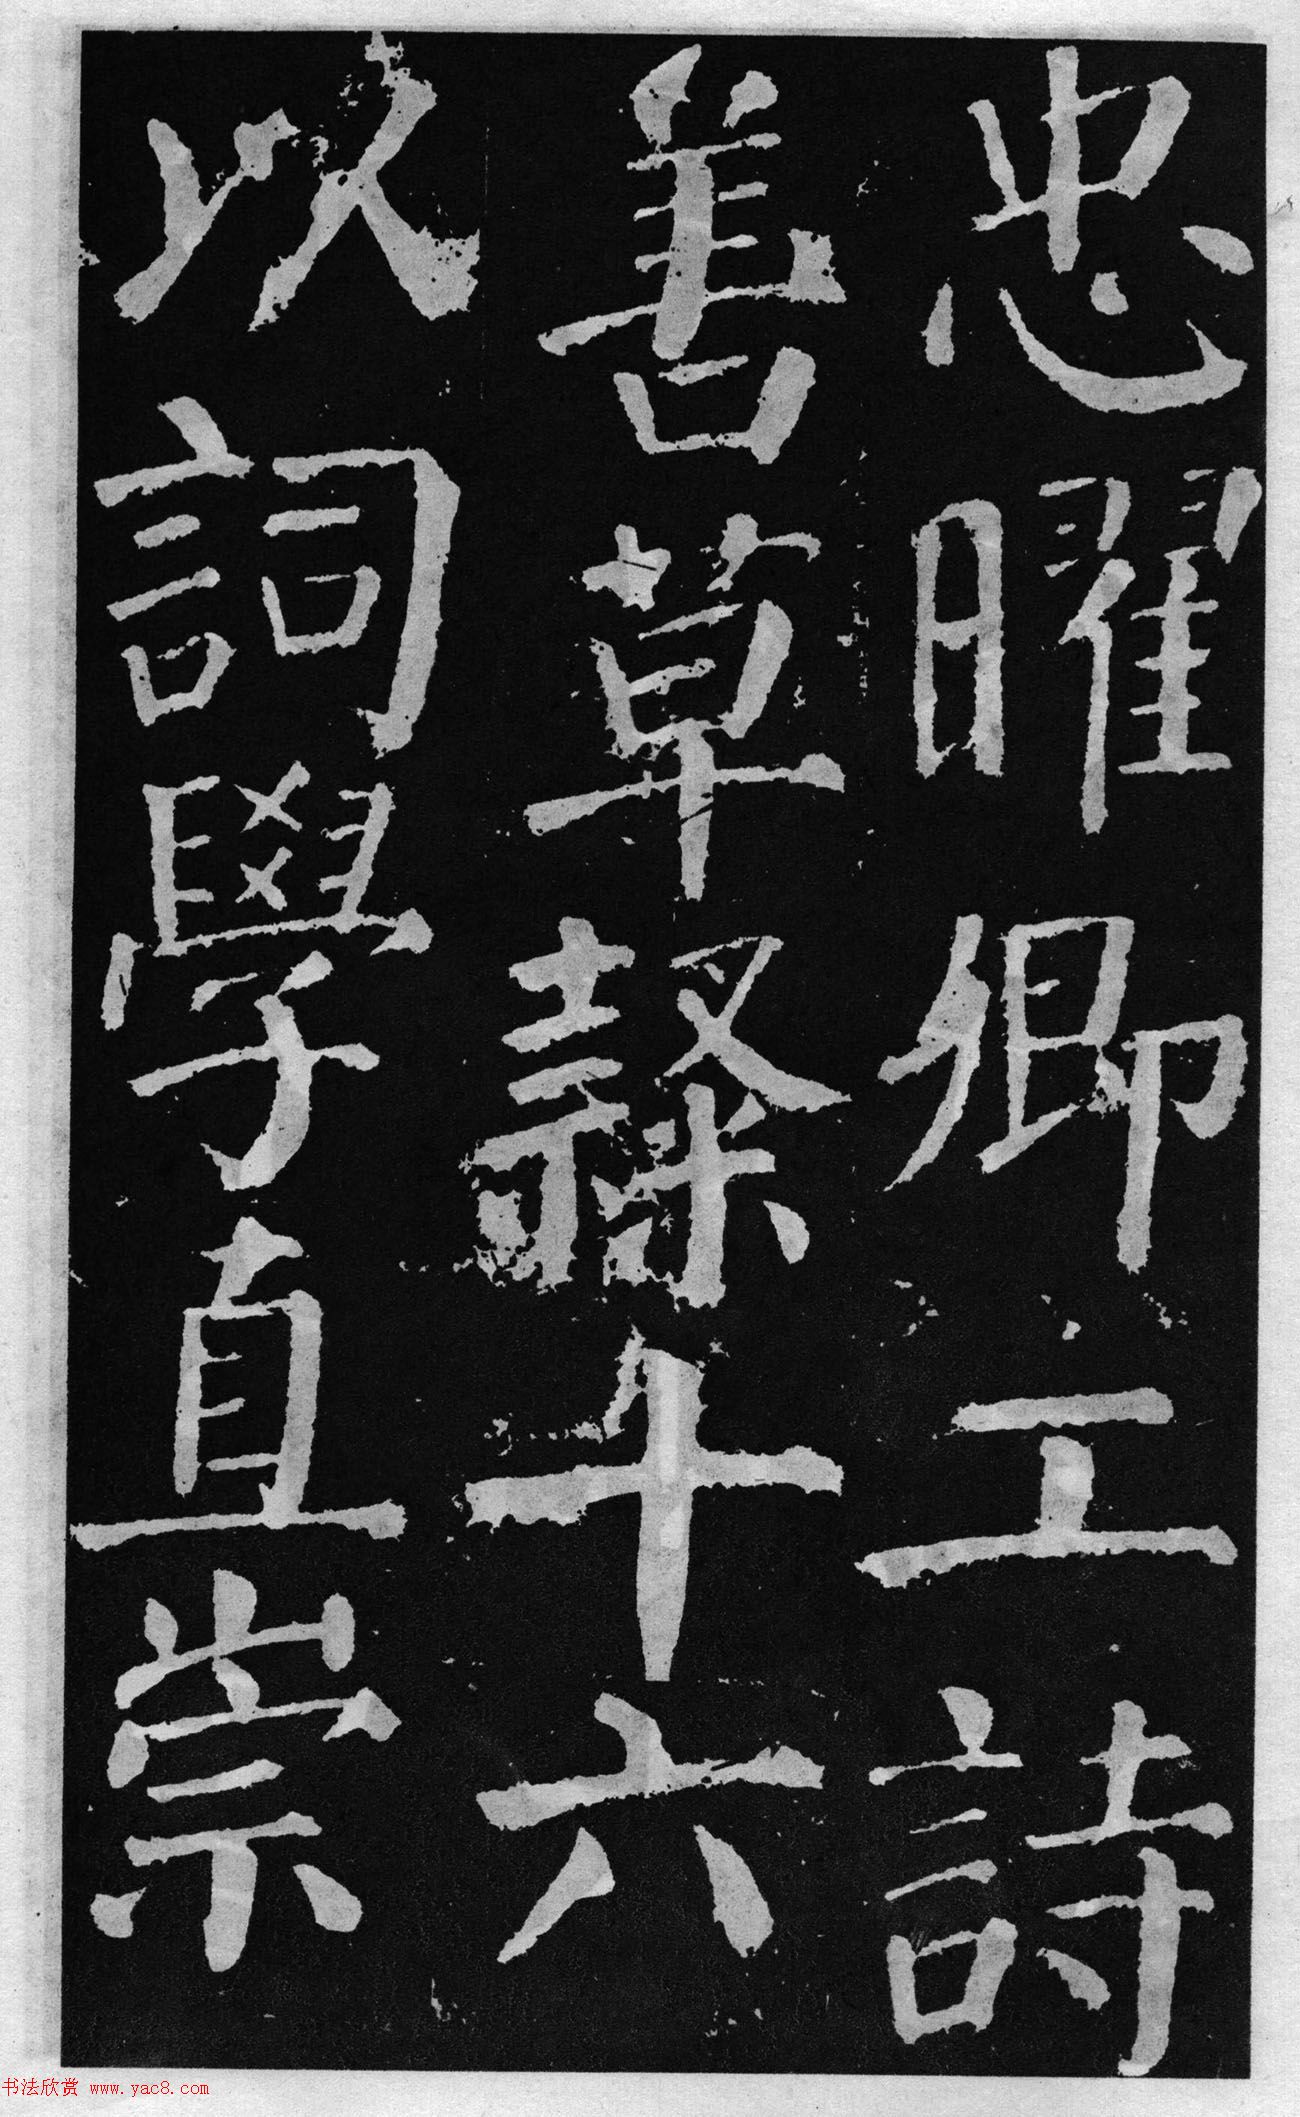 忠曜卿工詩
善草隸十六
以詞學直崇
书法欣赏 www.yac8.com